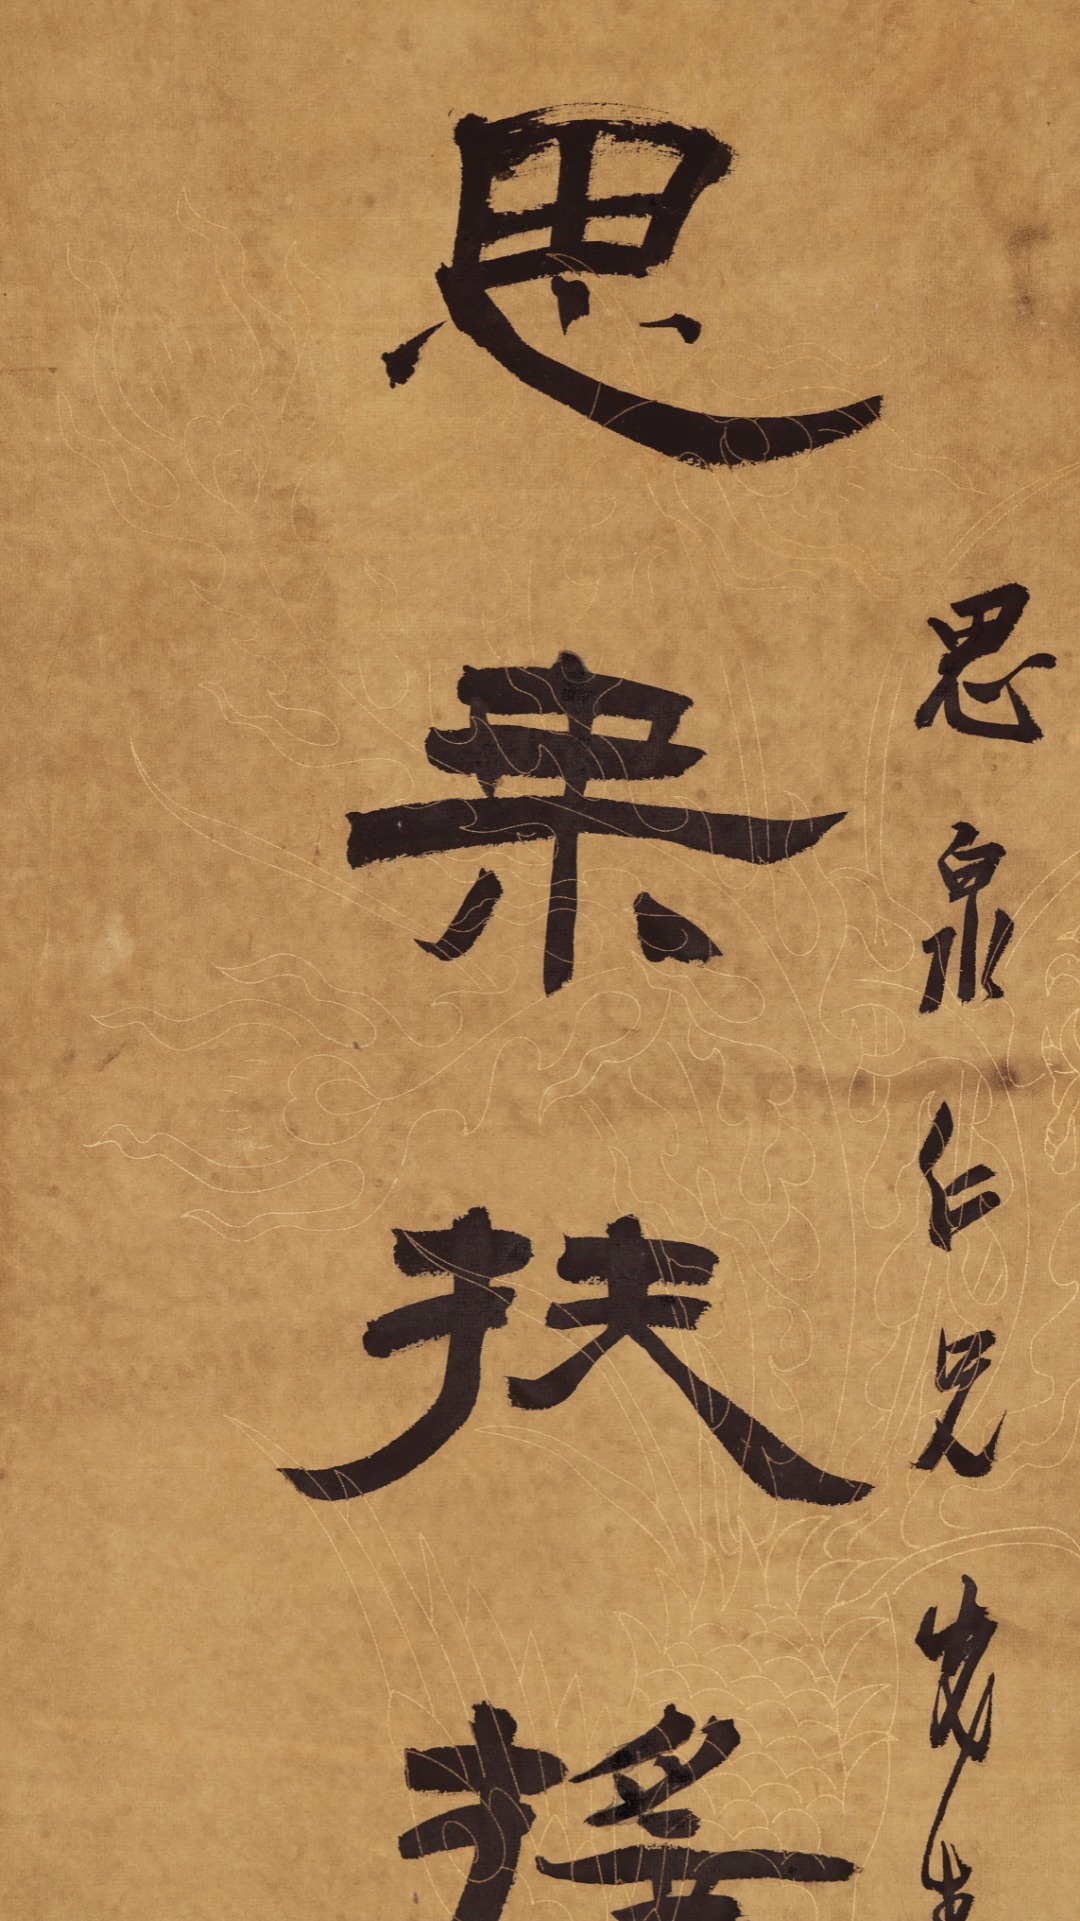 思泉仁兄先生
思乘扶搖